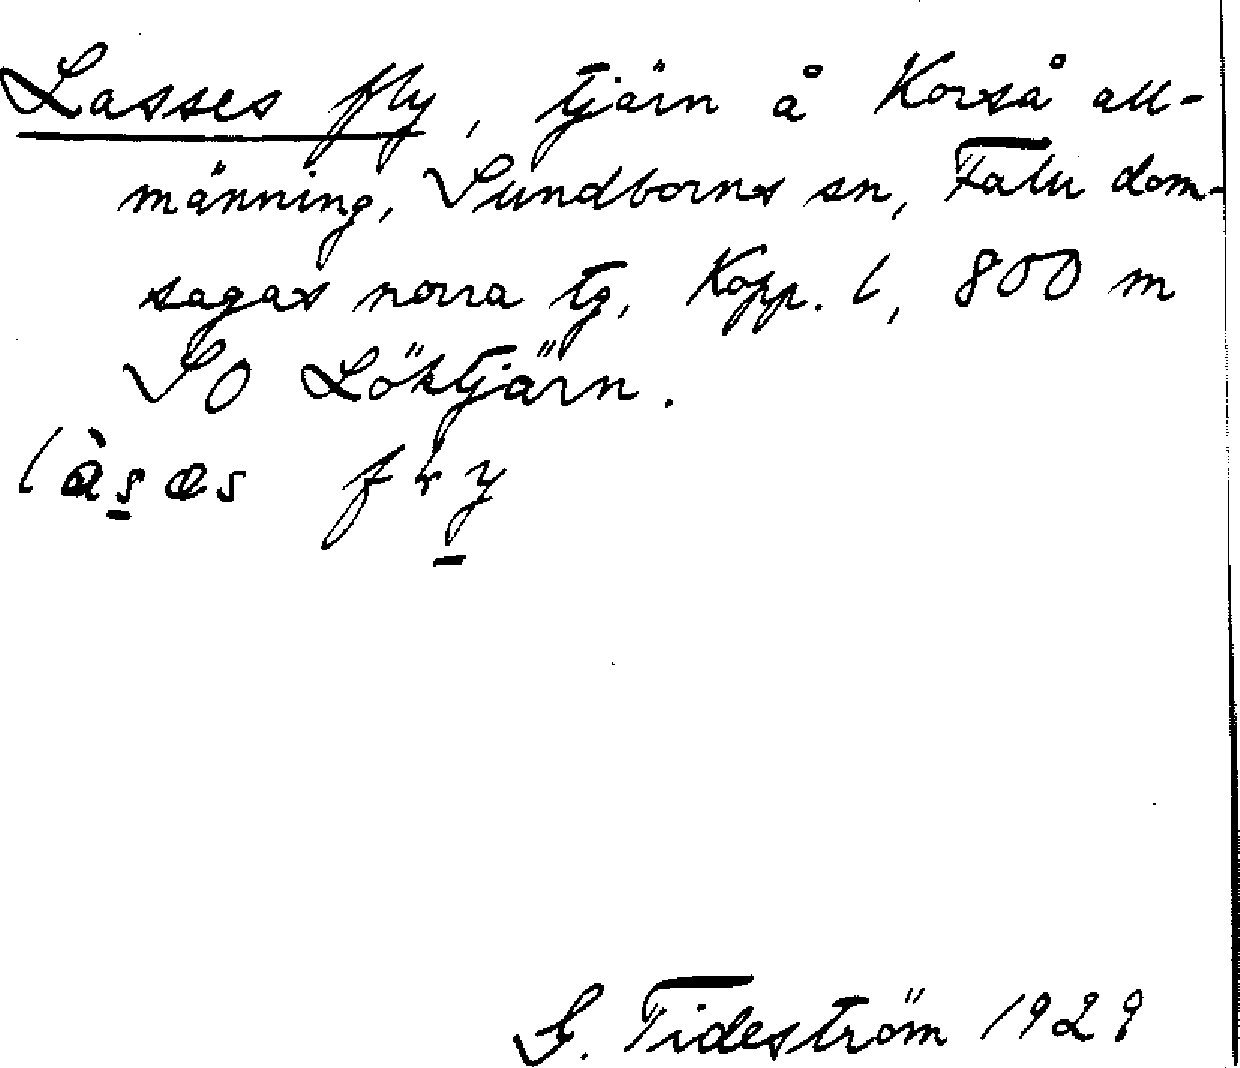 Lasses fly, tjärn å Korså all-
männing, Sundborns sn, Falu dom-
sagas norra tg, Kopp. l, 800 m
SO Löktjärn.
G. Tideström 1929